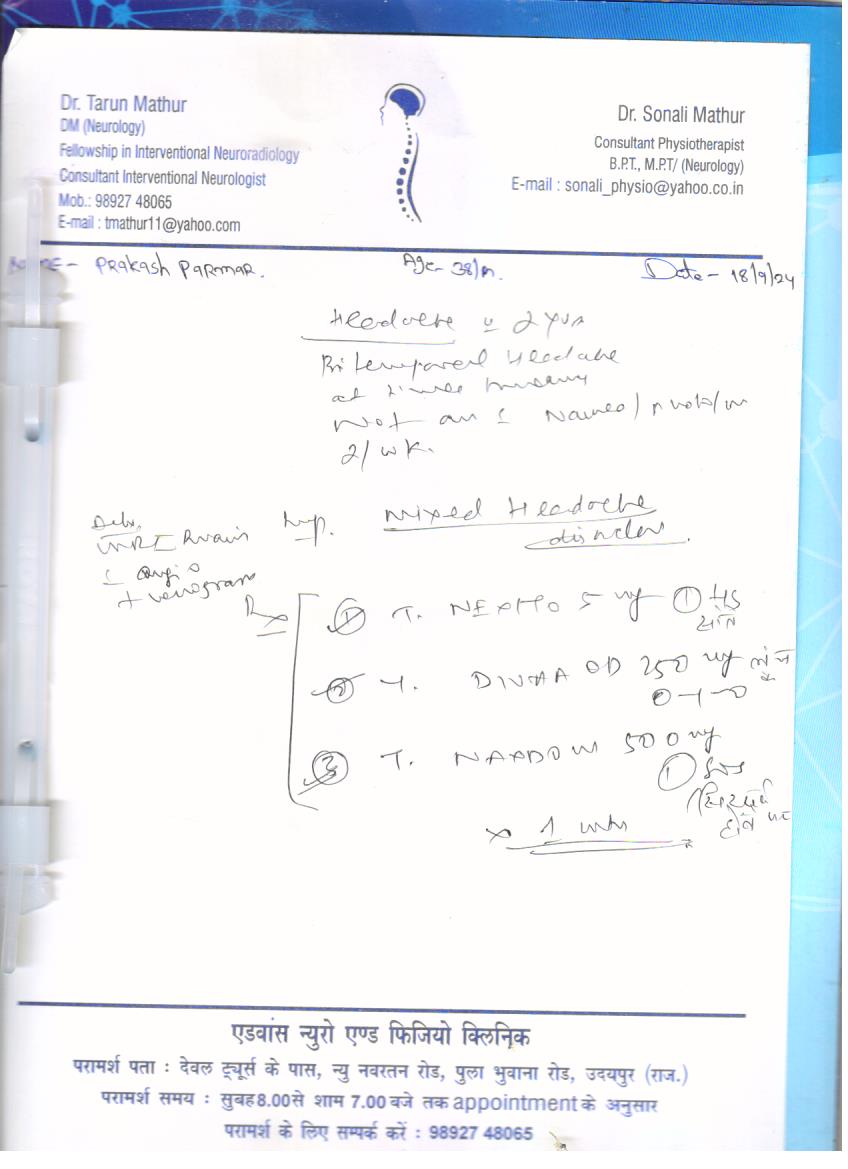 Dr. Tarun Mathur
DM (Neurology)
Fellowship in Interventional Neuroradiology
Consultant Interventional Neurologist
Mob.: 98927 48065
E-mail : tmathur11@yahoo.com
Dr. Sonali Mathur
Consultant Physiotherapist
B.P.T., M.P.T/ (Neurology)
E-mail : sonali_physio@yahoo.co.in
NAME - PRAKASH PARMAR.
Age - 38/M.
Date - 18/9/24
Headache 2 yrs
Bitemporal Headache
at times
Not
2/wk.
Adv.
MRI Brain
c angio
+ venogram
Imp. Mixed Headache
disorder.
Rx
① T. 5 mg ① HS
② T. OD 250 mg
0-1-0
③ T. 500 mg
① SOS
सिरदर्द
होने पर
x 1 mth
एडवांस न्युरो एण्ड फिजियो क्लिनिक
परामर्श पता : देवल ट्यूर्स के पास, न्यु नवरतन रोड, पुला भुवाना रोड, उदयपुर (राज.)
परामर्श समय : सुबह 8.00 से शाम 7.00 वजे तक appointment के अनुसार
परामर्श के लिए सम्पर्क करें : 98927 48065